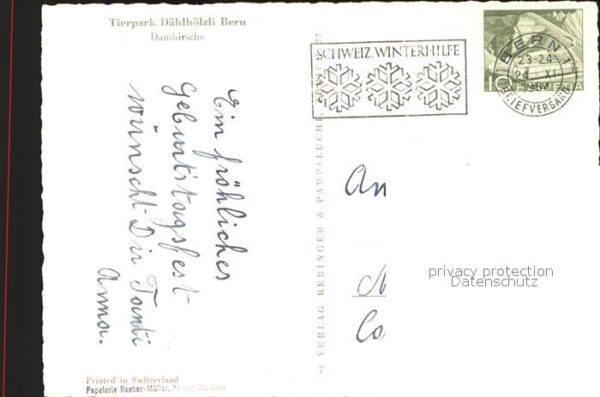 Tierpark Dählhölzli Bern
Damhirsche
Ein fröhliches
Geburtstagsfest
wünscht Dir Tanti
Anna.
Printed in Switzerland
Papeterie Raeber-Müller, Bern
VERLAG BERINGER & PAMPALUCHI
SCHWEIZ. WINTERHILFE
BERN 1
23-24
24. XI.
BRIEFVERSAND
10 HELVETIA
An
N
Co
privacy protection
Datenschutz